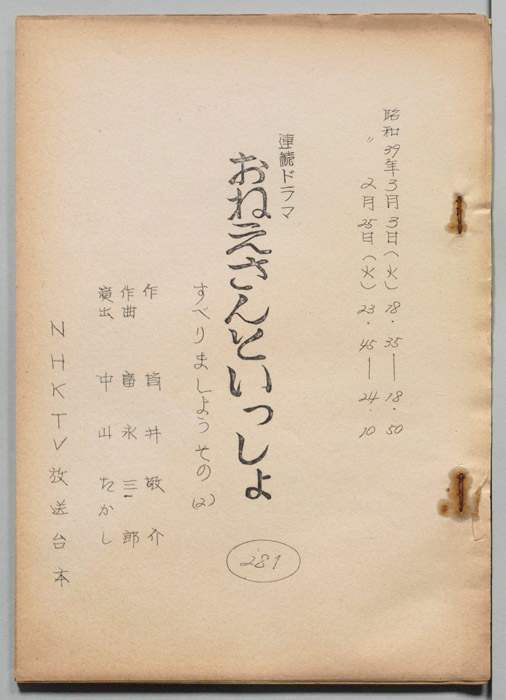 昭和39年3月3日(火)18・35―18・50
〃 2月25日(火)23・45―24・10
連続ドラマ
おねえさんといっしょ
すべりましょうその(2)
281
作 筒井敬介
作曲 冨永三郎
演出 中山たかし
NHKTV放送台本